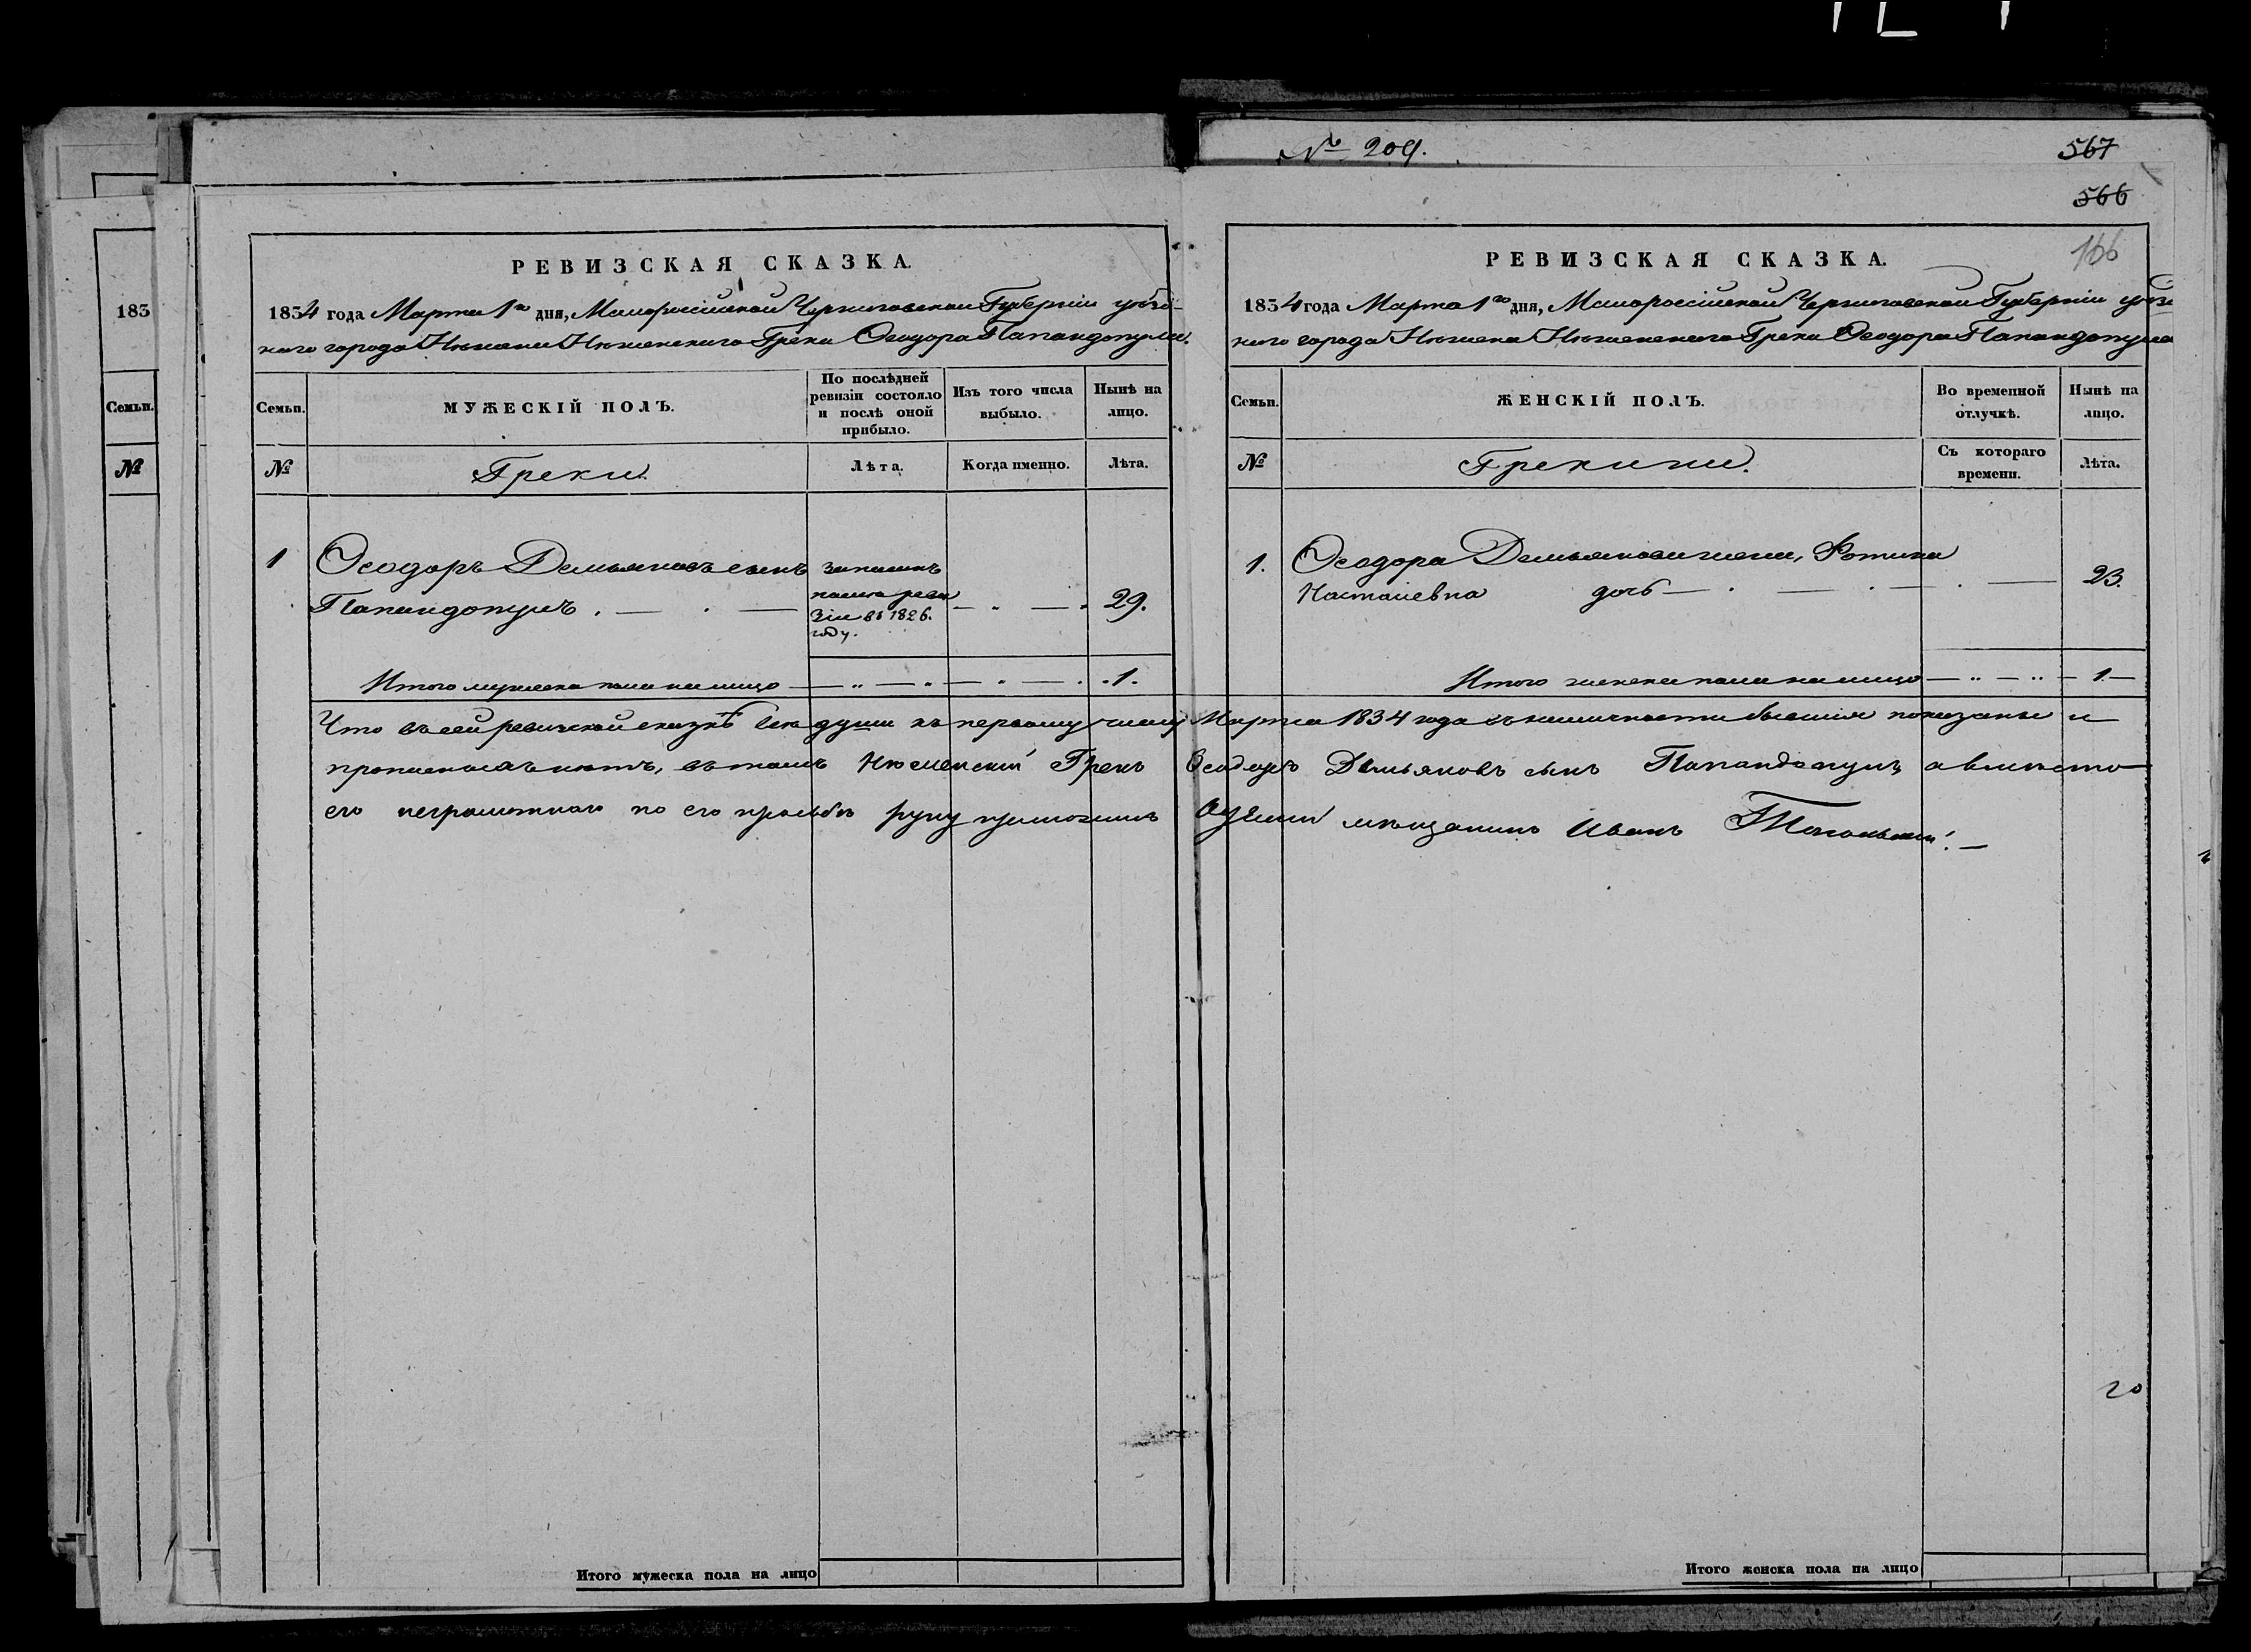 № 209.
567
566
166
183
Семьи.
№
РЕВИЗСКАЯ СКАЗКА.
1834 года Марта 1го дня, Малороссійской Черниговской Губерніи уѣзд-
наго города Нѣжина Нѣжинскаго Грека Ѳеодора Папандопула.
Семьи.
МУЖЕСКІЙ ПОЛЪ.
По послѣдней
ревизіи состояло
и послѣ оной
прибыло.
Изъ того числа
выбыло.
Нынѣ на
лицо.
№
Греки.
Лѣта.
Когда именно.
Лѣта.
1
Ѳеодоръ Демьяновъ сынъ
Папандопулъ
записанъ
послѣ реви
зіи въ 1826.
году.
29.
Итого мужеска пола на лицо
1.
РЕВИЗСКАЯ СКАЗКА.
1834 года Марта 1го дня, Малороссійской Черниговской Губерніи уѣзд
наго города Нѣжина Нѣжинскаго Грека Ѳеодора Папандопула
Семьи.
ЖЕНСКІЙ ПОЛЪ.
Во временной
отлучкѣ.
Нынѣ на
лицо.
№
Грекини.
Съ котораго
времени.
Лѣта.
1.
Ѳеодора Демьянова жена, Фотина
дочь
23.
Итого женска пола на лицо
1
Что въ сей ревизской сказкѣ всѣ души къ первому числу Марта 1834 года въ наличности бывшія показаны и
прописныхъ нѣтъ, въ томъ Нѣженский Грекъ Ѳеодоръ Демьяновъ сынъ Папандопулъ а вмѣсто
его неграмотнаго по его прозьбѣ руку приложилъ мѣщанинъ Иванъ
20
Итого мужеска пола на лицо
Итого женска пола на лицо